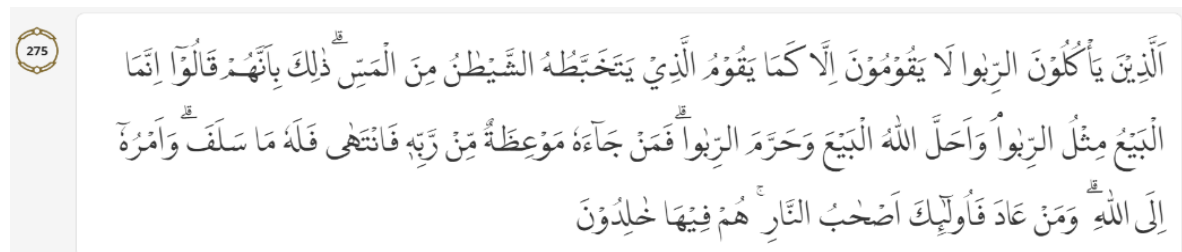 275
اَلَّذِيْنَ يَأْكُلُوْنَ الرِّبٰوا لَا يَقُوْمُوْنَ اِلَّا كَمَا يَقُوْمُ الَّذِيْ يَتَخَبَّطُهُ الشَّيْطٰنُ مِنَ الْمَسِّۗ ذٰلِكَ بِاَنَّهُمْ قَالُوْٓا اِنَّمَا
الْبَيْعُ مِثْلُ الرِّبٰواۘ وَاَحَلَّ اللّٰهُ الْبَيْعَ وَحَرَّمَ الرِّبٰواۗ فَمَنْ جَاۤءَهٗ مَوْعِظَةٌ مِّنْ رَّبِّهٖ فَانْتَهٰى فَلَهٗ مَا سَلَفَۗ وَاَمْرُهٗٓ
اِلَى اللّٰهِۗ وَمَنْ عَادَ فَاُولٰۤىِٕكَ اَصْحٰبُ النَّارِۚ هُمْ فِيْهَا خٰلِدُوْنَ